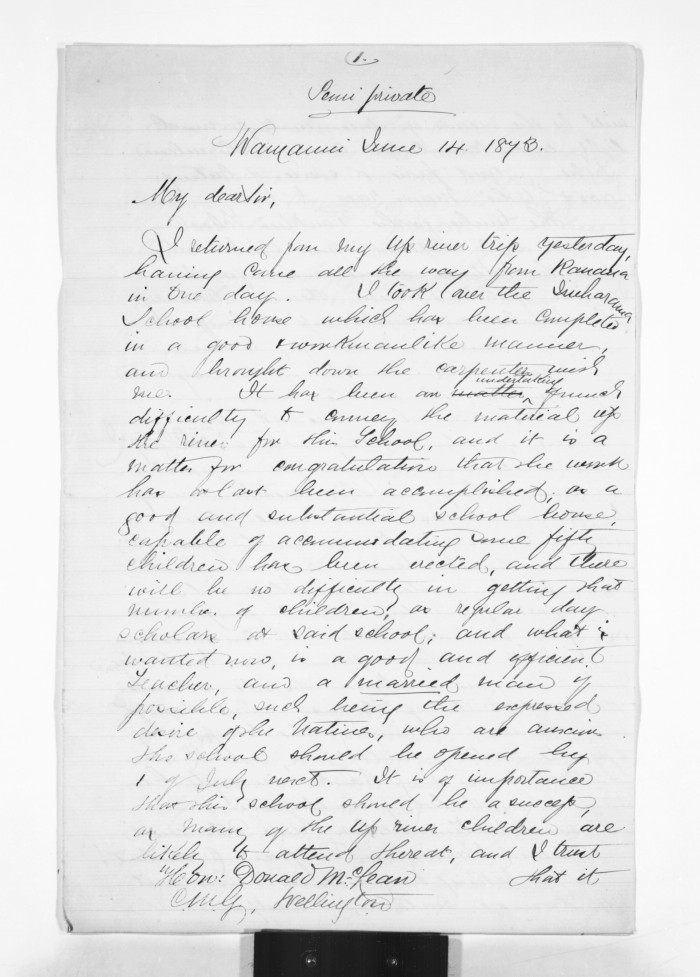 1.
Semi private
Wanganui June 14. 1873.
My dear Sir,
I returned from my up river trip yesterday,
having come all the way from Ranana
in one day. I took over the
School house which has been completed
in a good & workmanlike manner,
and brought down the carpenter with
me. It has been an matter undertaking of much
difficulty to convey the material up
the river for this School, and it is a
matter for congratulation that the work
has at last been accomplished, as a
good and substantial school house,
capable of accommodating some fifty
children has been erected, and there
will be no difficulty in getting that
number of children, as regular day
scholars at said school; and what is
wanted now, is a good and efficient
teacher, and a married man if
possible, such being the expressed
desire of the Natives, who are anxious
the school should be opened by
1 of July next. It is of importance
that this school should be a success,
as many of the up river children are
likely to attend thereat, and I trust
Hon: Donald McLean that it
C.M.G, Wellington